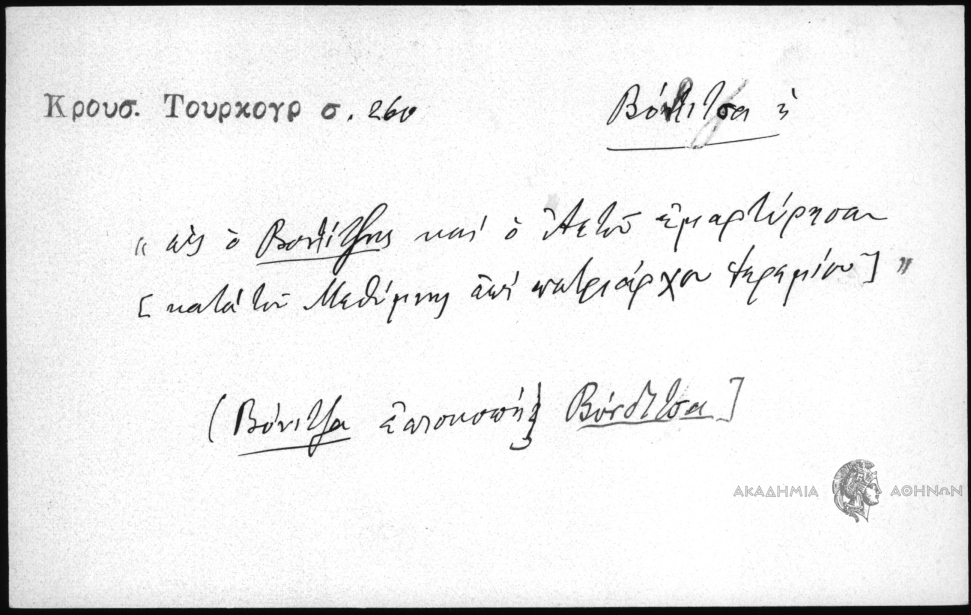 Κρουσ. Τουρκογρ σ. 260
Βόνιτσα ἡ
" ὡς ὁ Βονίτζης καί ὁ Ἀετοῦ ἐμαρτύρησαν
[κατά τοῦ Μεθύμνης ἐπί πατριάρχου Ἱερεμίου] "
(Βόνιτζα ἐπισκοπή] Βόνδιτσα]
ΑΚΑΔΗΜΙΑ ΑΘΗΝΩΝ